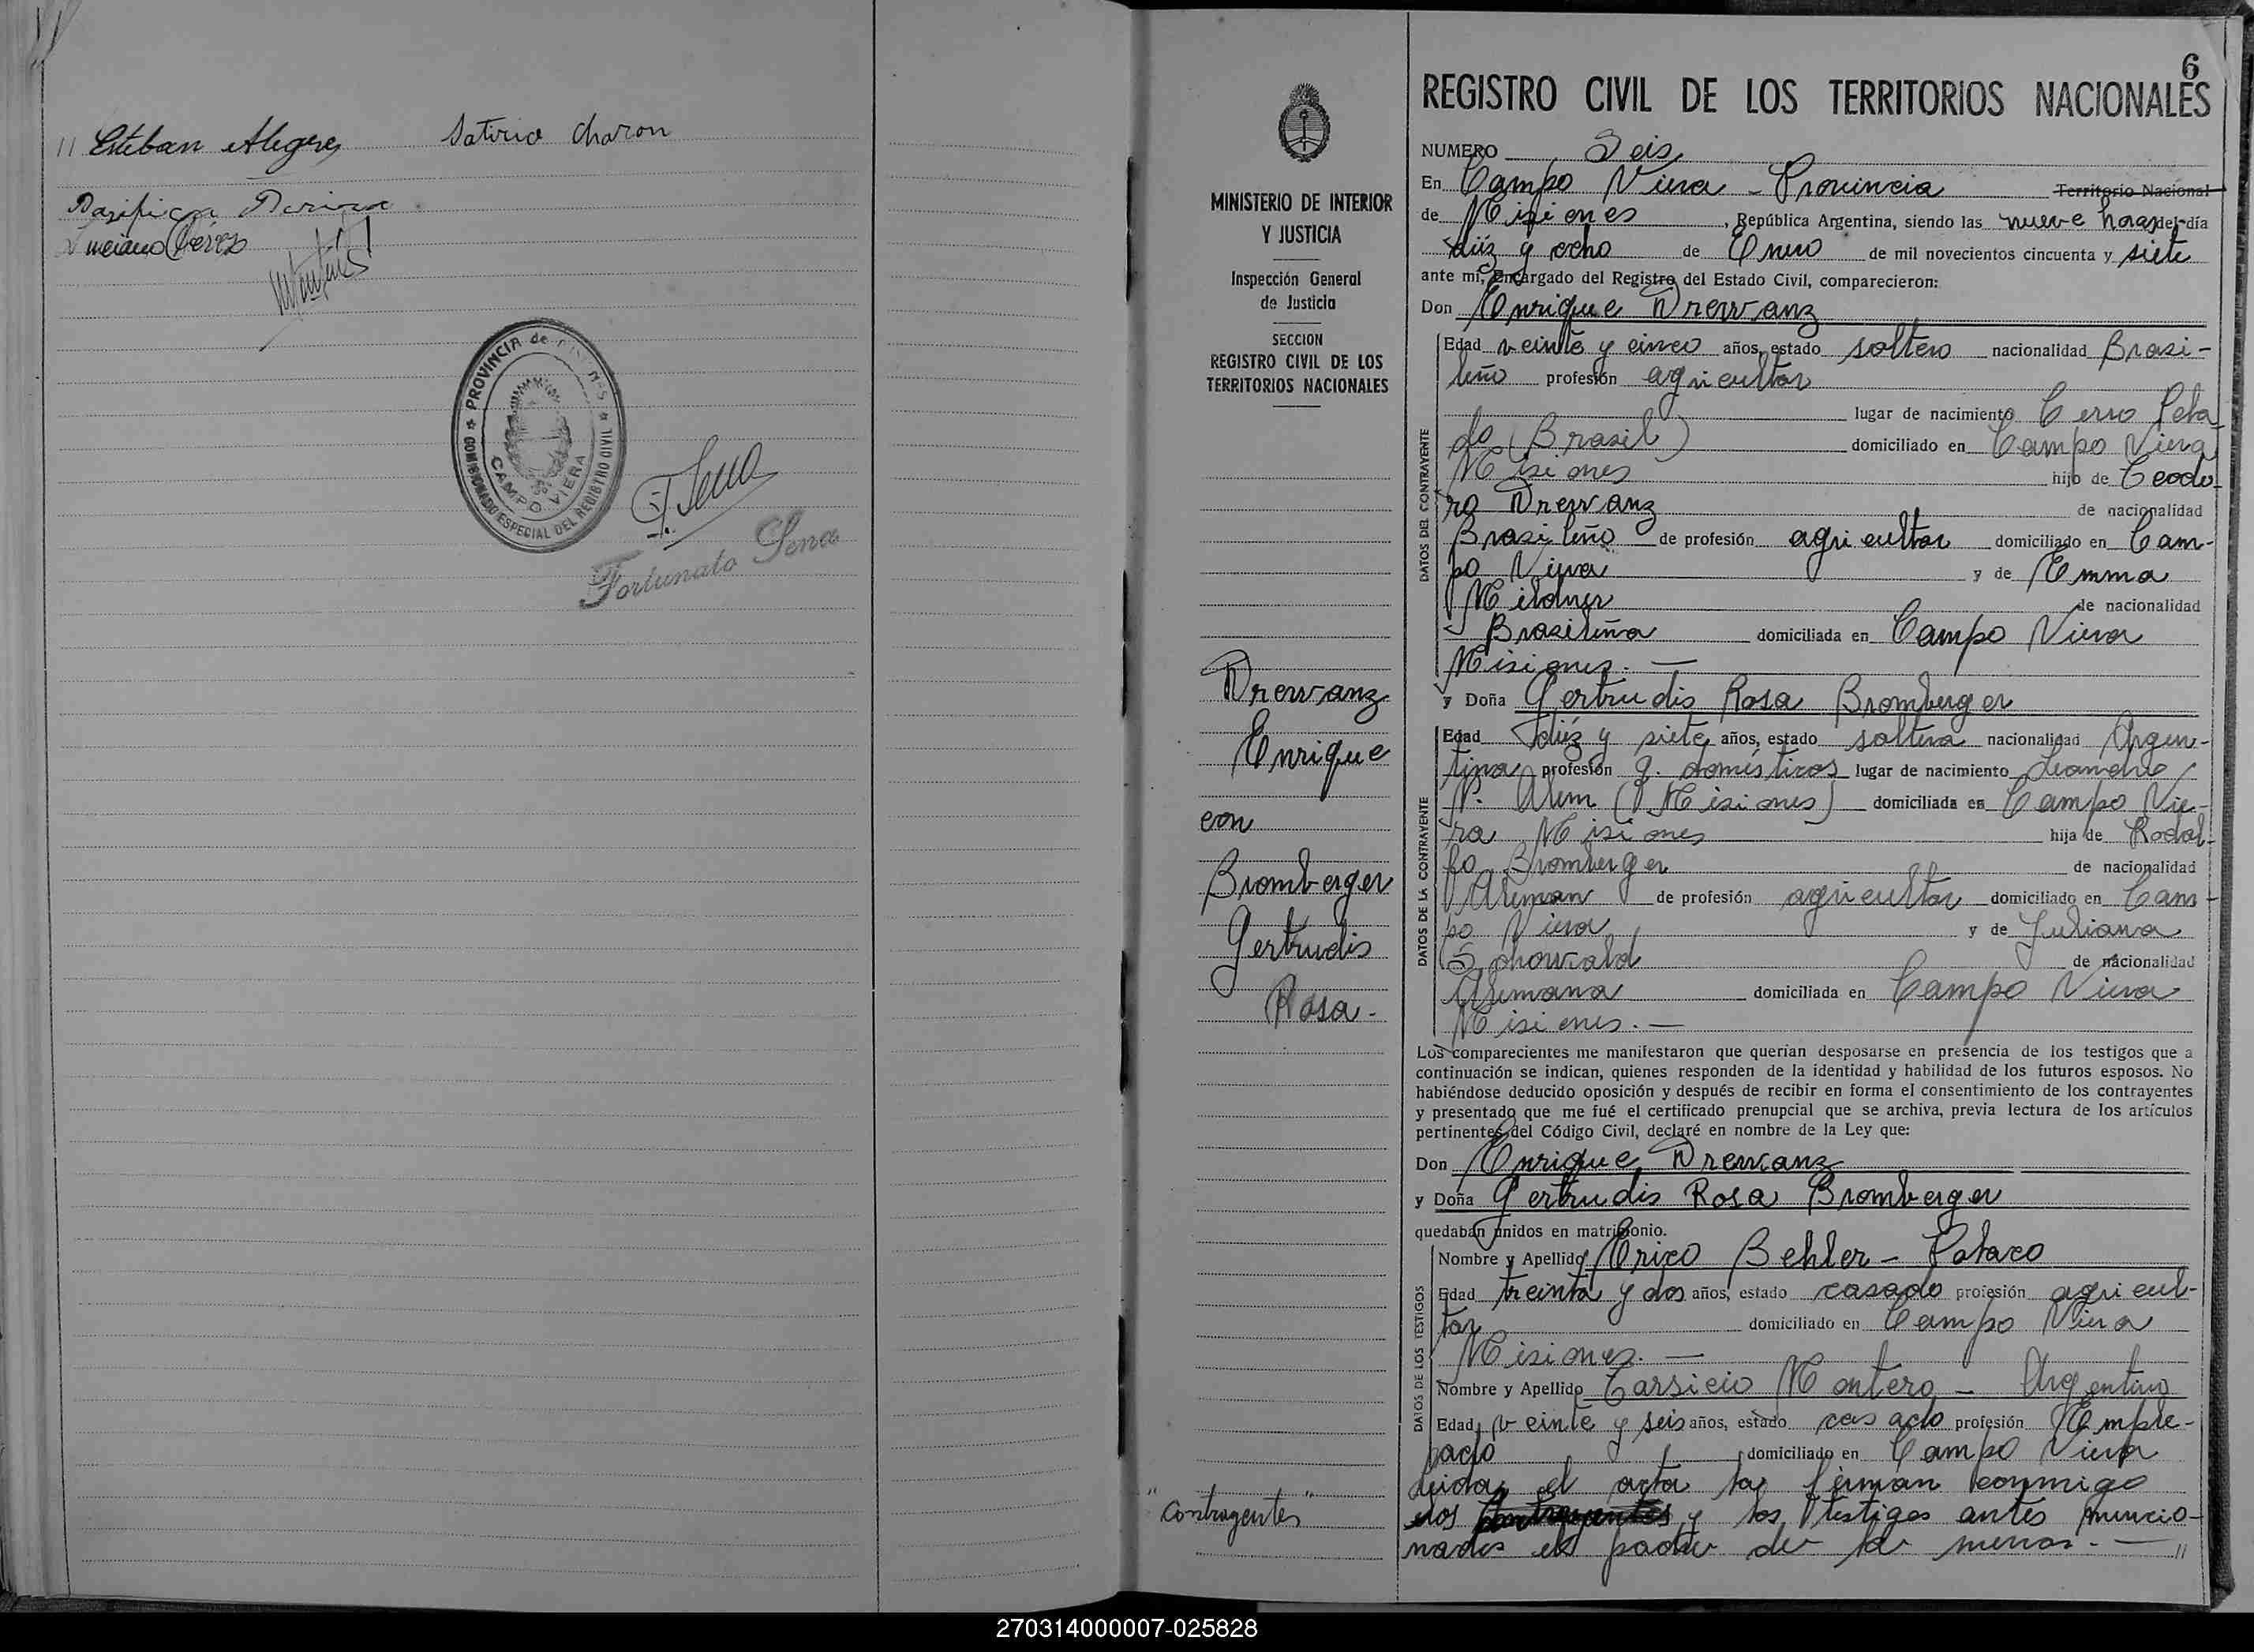 // Esteban Alegre Satirio Charon
Luciano Pérez
PROVINCIA de MISIONES
COMISIONADO ESPECIAL DEL REGISTRO CIVIL
CAMPO VIERA
F. Sena
Fortunato Sena
MINISTERIO DE INTERIOR
Y JUSTICIA
Inspección General
de Justicia
SECCION
REGISTRO CIVIL DE LOS
TERRITORIOS NACIONALES
Drewanz
Enrique
con
Bromberger
Gertrudis
Rosa.-
"Contrayentes"
6
REGISTRO CIVIL DE LOS TERRITORIOS NACIONALES
NUMERO Seis
En Campo Viera - Provincia Territorio Nacional
de Misiones, República Argentina, siendo las nueve horas del día
diéz y ocho de Enero de mil novecientos cincuenta y siete
ante mi, Encargado del Registro del Estado Civil, comparecieron:
Don Enrique Drewanz
Edad veinte y cinco años, estado soltero nacionalidad Brasi-
leño profesión agricultor
lugar de nacimiento Cerro Pela
do (Brasil) domiciliado en Campo Viera
Misiones hijo de Teodo-
ro Drewanz de nacionalidad
Brasileño de profesión agricultor domiciliado en Cam-
po Viera y de Emma
Mildner de nacionalidad
Brasileña domiciliada en Campo Viera
Misiones.-
y Doña Gertrudis Rosa Bromberger
Edad diéz y siete años, estado soltera nacionalidad Argen-
tina profesión q. domésticos lugar de nacimiento Leandro
N. Alem (Misiones) domiciliada en Campo Vie-
ra Misiones hija de Rodol-
fo Bromberger de nacionalidad
Aleman de profesión agricultor domiciliado en Cam-
po Viera y de Juliana
Schowald de nacionalidad
Alemana domiciliada en Campo Viera
Misiones.-
DATOS DEL CONTRAYENTE
DATOS DE LA CONTRAYENTE
Los comparecientes me manifestaron que querían desposarse en presencia de los testigos que a
continuación se indican, quienes responden de la identidad y habilidad de los futuros esposos. No
habiéndose deducido oposición y después de recibir en forma el consentimiento de los contrayentes
y presentado que me fué el certificado prenupcial que se archiva, previa lectura de los artículos
pertinentes del Código Civil, declaré en nombre de la Ley que:
Don Enrique Drewanz
y Doña Gertrudis Rosa Bromberger
quedaban unidos en matrimonio.
Nombre y Apellido Erico Behler - Polaco
Edad treinta y dos años, estado casado profesión agricul-
tor domiciliado en Campo Viera
Misiones.-
Nombre y Apellido Tarsicio Montero - Argentino
Edad veinte y seis años, estado casado profesión Emple-
ado domiciliado en Campo Viera
DATOS DE LOS TESTIGOS
Leida el acta la firman conmigo
los contrayentes y los testigos antes mencio-
nados el padre de la menor.- //
270314000007-025828